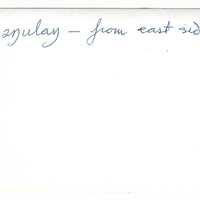 azulay – from east sid